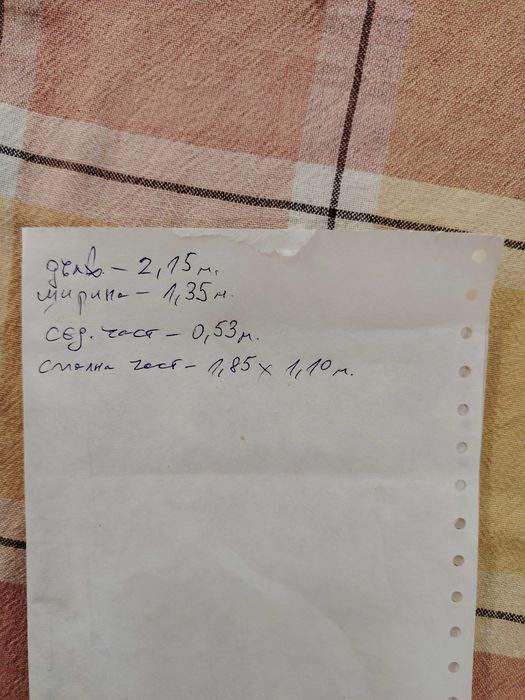 дълж. – 2,15 м.
ширина – 1,35 м.
сед. част – 0,53 м.
спална част – 1,85 x 1,10 м.